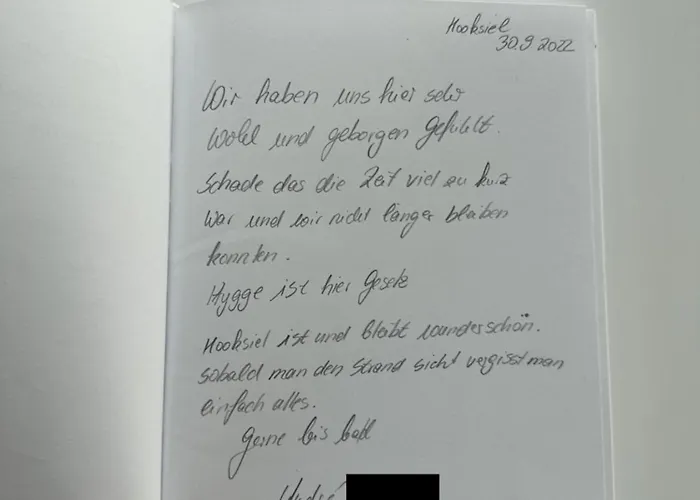 Hooksiel
30.9 2022
Wir haben uns hier sehr
Wohl und geborgen Gefühlt.
Schade das die Zeit viel zu kurz
War und wir nicht länger bleiben
konnten.
Hygge ist hier Gesetz
Hooksiel ist und Bleibt wunderschön.
sobald man den Strand sieht vergisst man
einfach alles.
Gerne bis bald
André